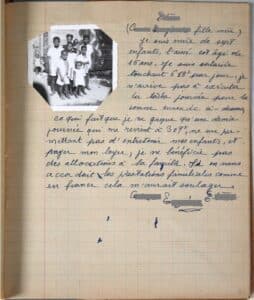 fille mère)
Je suis mère de sept
enfants, l'ainé est âgé de
16 ans. Je suis salariée
touchant 618f par jour, je
n'arrive pas à exécuter
la tâche journée pour la
somme
ce qui fait que je ne gagne qu'une demie
journée qui me revient à 309f, ne me per-
mettant pas d'entretenir mes enfants, et
payer mon loyer, je ne bénéficie pas
des allocations à la famille. Si on nous
accordait les prestations familiales comme
en france cela m'aurait soulager